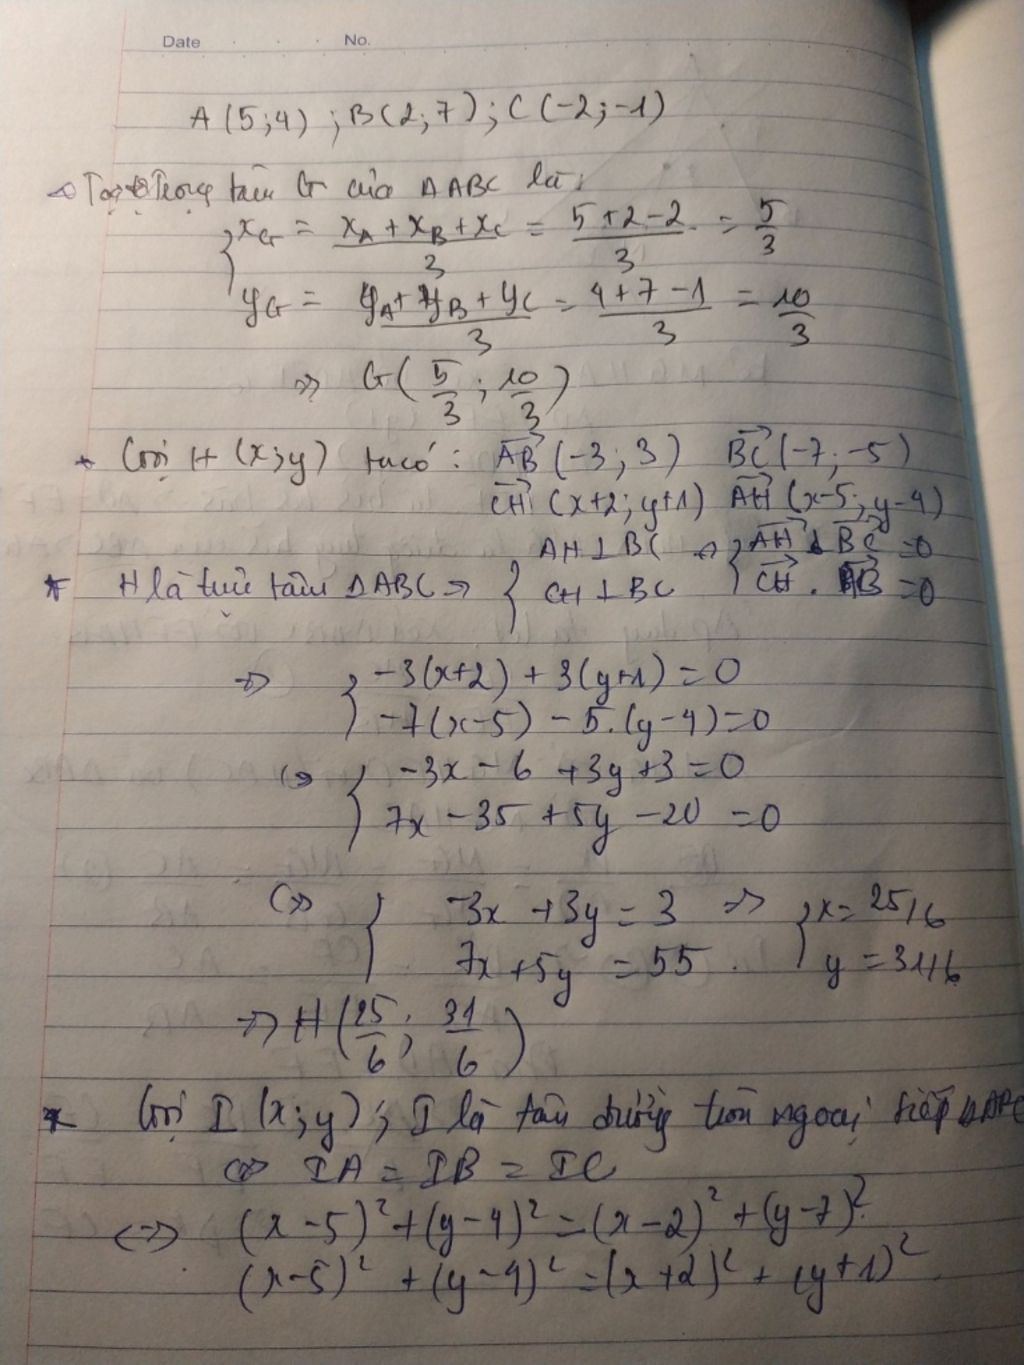 Date No.
A(5;4) ; B(2;7) ; C(-2;-1)
Trọng tâm G của ΔABC là:
{ x_G = (x_A + x_B + x_C)/3 = (5+2-2)/3 = 5/3
y_G = (y_A + y_B + y_C)/3 = (4+7-1)/3 = 10/3
=> G(5/3 ; 10/3)
* Gọi H(x;y) ta có: AB→(-3;3) BC→(-7;-5)
CH→(x+2;y+1) AH→(x-5;y-4)
AH⊥BC <=> { AH→ . BC→ =0
* H là trực tâm ΔABC => { CH⊥BC { CH→ . AB→ =0
=> { -3(x+2) + 3(y+1) = 0
-7(x-5) - 5.(y-4)=0
<=> { -3x - 6 +3y+3=0
7x -35 +5y -20 =0
<=> { -3x +3y = 3 => { x = 25/6
7x +5y = 55 . y = 31/6
=> H(25/6 ; 31/6)
* Gọi I (x;y); I là tâm đường tròn ngoại tiếp ΔABC
<=> IA = IB = IC
<=> (x-5)² + (y-4)² = (x-2)² + (y-7)²
(x-5)² + (y-4)² = (x+2)² + (y+1)²